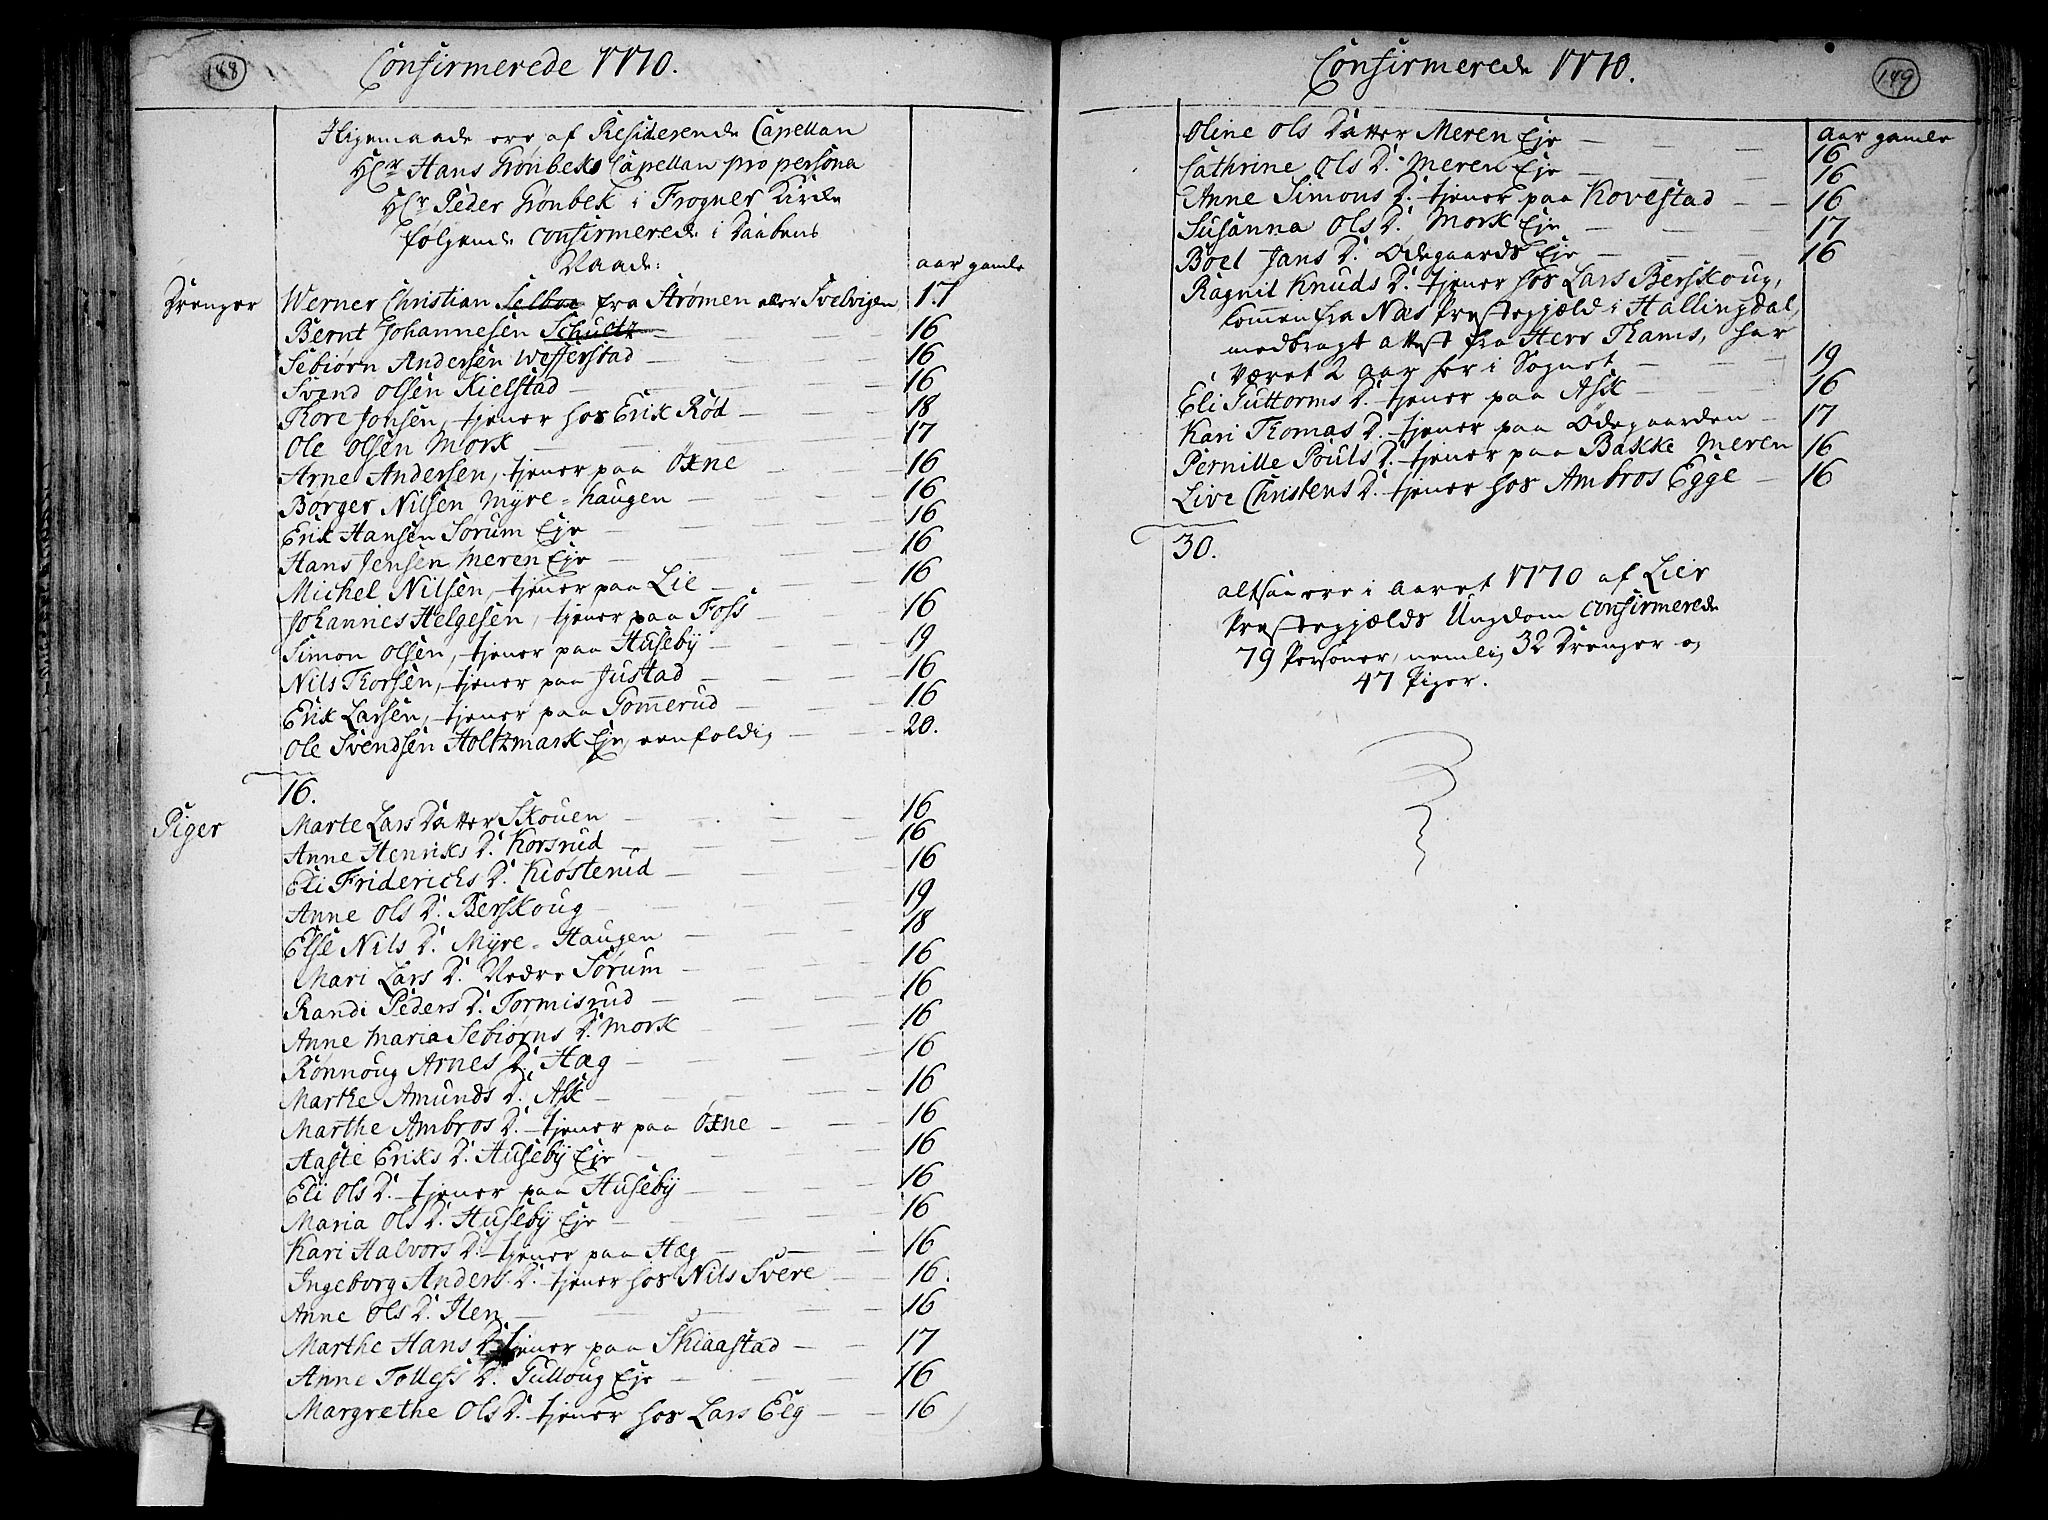 148
Confirmerede 1770.
Iligemaade ere af Residerende Capellan
HCr Hans Grönbeks Capellan pro persona
HCr Peder Grönbek i Frogner Kirke
følgende confirmerede i Daabens
Naade:
aar gamle
Drenger Werner Christian Selboe fra Strømen eller Svelvigen 17
Bernt Johannesen Schultz 16
Sebiörn Andersen Wefferstad 16
Svend Olsen Kielstad 16
Thore Jonsen, tjener hos Erik Röd 18
Ole Olsen Mörk 17
Arne Andersen, tjener paa Öxne 16
Börger Nilsen Myre-haugen 16
Erik Hansen Sörum Eje 16
Hans Jensen Meren Eje 16
Michel Nilsen, tjener paa Lie 16
Johannes Helgesen, tjener paa Foss 16
Simon Olsen, tjener paa Huseby 19
Nils Thorsen, tjener paa Justad 16
Erik Larsen, tjener paa Gommerud 16
Ole Svendsen Holtzmark Eje, eenfoldig 20.
16.
Piger Marte Lars Datter Skouen 16
Anne Henriks D. Korsrud 16
Eli Friderichs D. Kiösterud 16
Anne Ols D. Berskoug 19
Else Nils D. Myre-Haugen 18
Mari Lars D. Nedre Sörum 16
Randi Peders D. Tormisrud 16
Anne Maria Sebiörns D. Mörk 16
Rönnoug Arnes D. Hæg 16
Marthe Amunds D. Ask 16
Marthe Ambros D. tjener paa Öxne 16
Aaste Eriks D. Huseby Eje 16
Eli Ols D. tjener paa Huseby 16
Maria Ols D. Huseby Eje 16
Kari Halvors D. tjener paa Hæg 16
Ingeborg Anders D. tjener hos Nils Svere 16.
Anne Ols D. Ilen 16
Marthe Hans D. tjener paa Skiaastad 17
Anne Tollefs D. Gulloug Eje 16
Margrethe Ols D. tjener hos Lars Elg 16
149
Confirmerede 1770.
aar gamle
Oline Ols Datter Meren Eje 16
Cathrine Ols D. Meren Eje 16
Anne Simons D. tjener paa Kovestad 16
Susanna Ols D. Mörk Eje 17
Boel Jans D. Ödegaards Eje 16
Ragnil Knuds D. tjener hos Lars Berskoug,
kommen fra Næs Prestegjæld i Hallingdal,
medbragt attest fra Herr Thams, har
været 2 aar her i Sognet 19
Eli Guttorms D. tjener paa Ask 16
Kari Thomas D. tjener paa Ödegaarden 17
Pernille Pouls D. tjener paa Bakke Meren 16
Live Christens D. tjener hos Ambros Egge 16
30.
altsaa ere i aaret 1770 af Lier
Prestegjælds Ungdom confirmerede
79 Personer, nemlig 32 Drenger og
47 Piger.